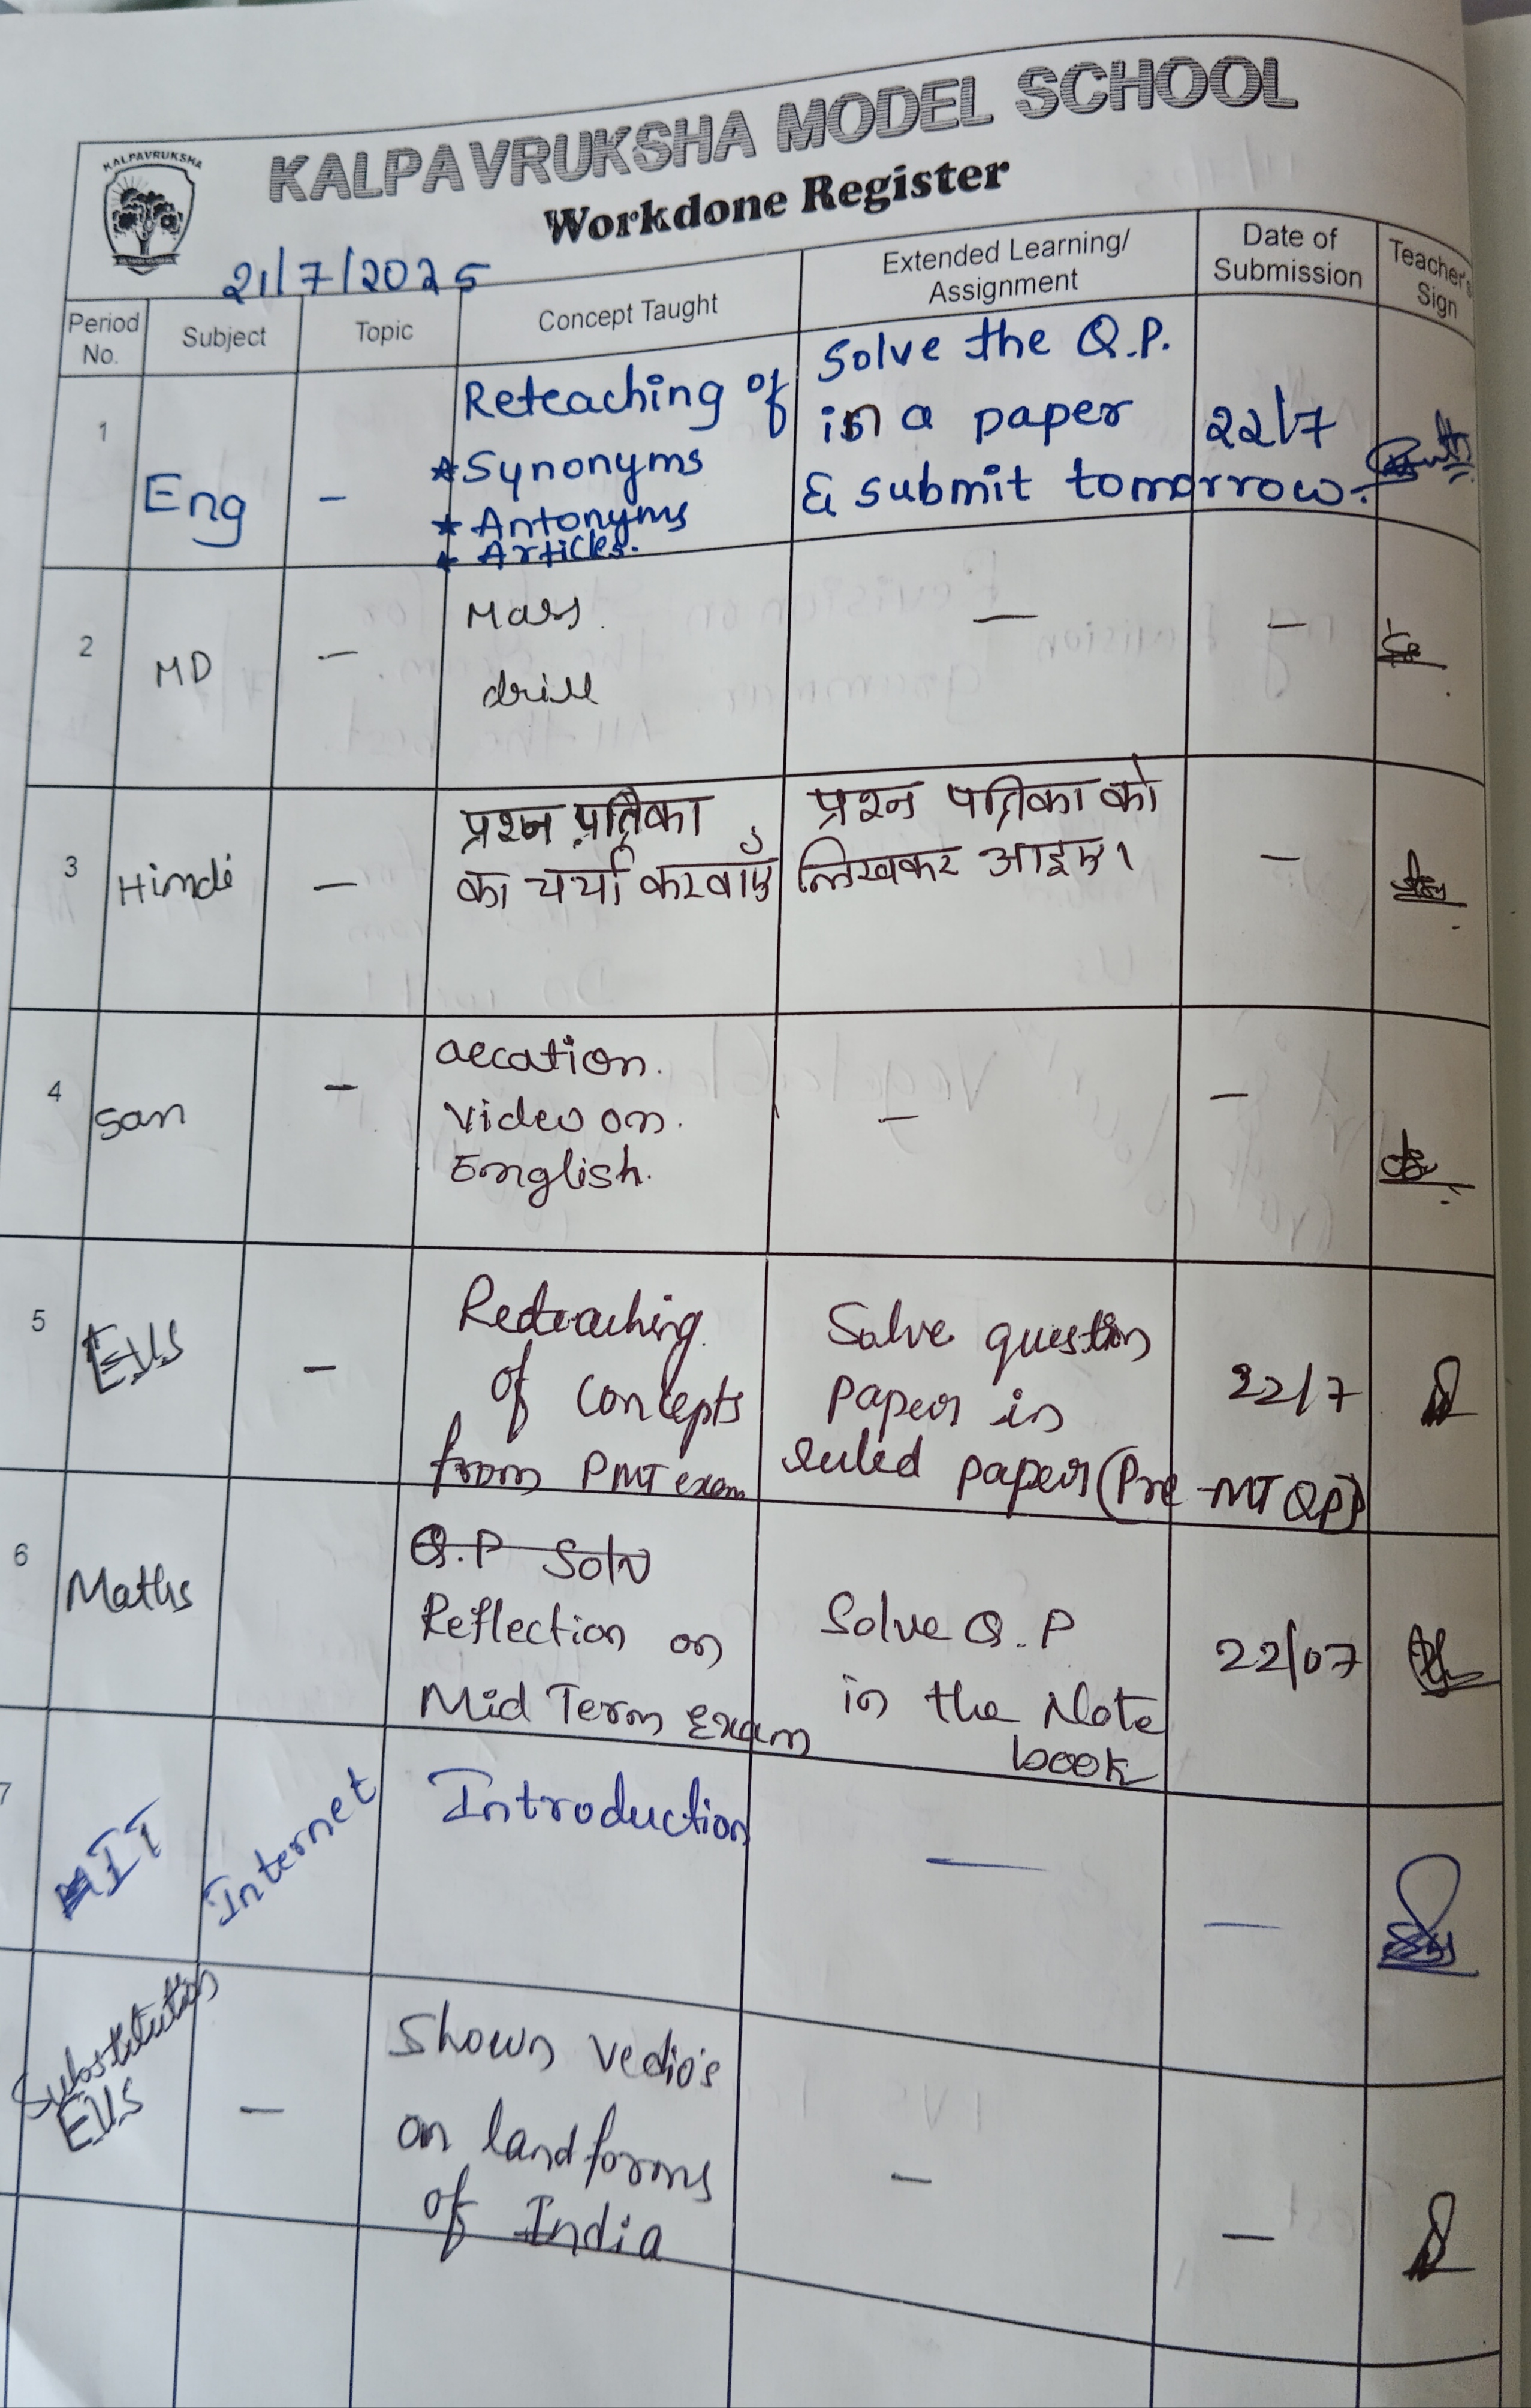 KALPAVRUKSHA
KALPAVRUKSHA MODEL SCHOOL
Workdone Register
21/7/2025
Period No.
Subject
Topic
Concept Taught
Extended Learning/
Assignment
Date of
Submission
Teacher's
Sign
1
Eng
-
Reteaching of
* Synonyms
* Antonyms
* Articles.
Solve the Q.P.
in a paper
& submit tomorrow.
22/7
2
MD
-
Mass
drill
-
-
3
Hindi
-
प्रश्न पत्रिका
का चर्चा करवाएँ
प्रश्न पत्रिका को
लिखकर आइए।
-
4
San
-
aecation.
Video on.
English.
-
-
5
EVS
-
Reteaching
of Concepts
from PMT exam
Solve question
paper in
ruled paper (Pre-MT QP)
22/7
6
Maths
Q.P Solv
Reflection on
Mid Term Exam
Solve Q.P
in the Note
book
22/07
7
IT
Internet
Introduction
-
-
Substitution
EVS
-
Shown vedio's
on landforms
of India
-
-